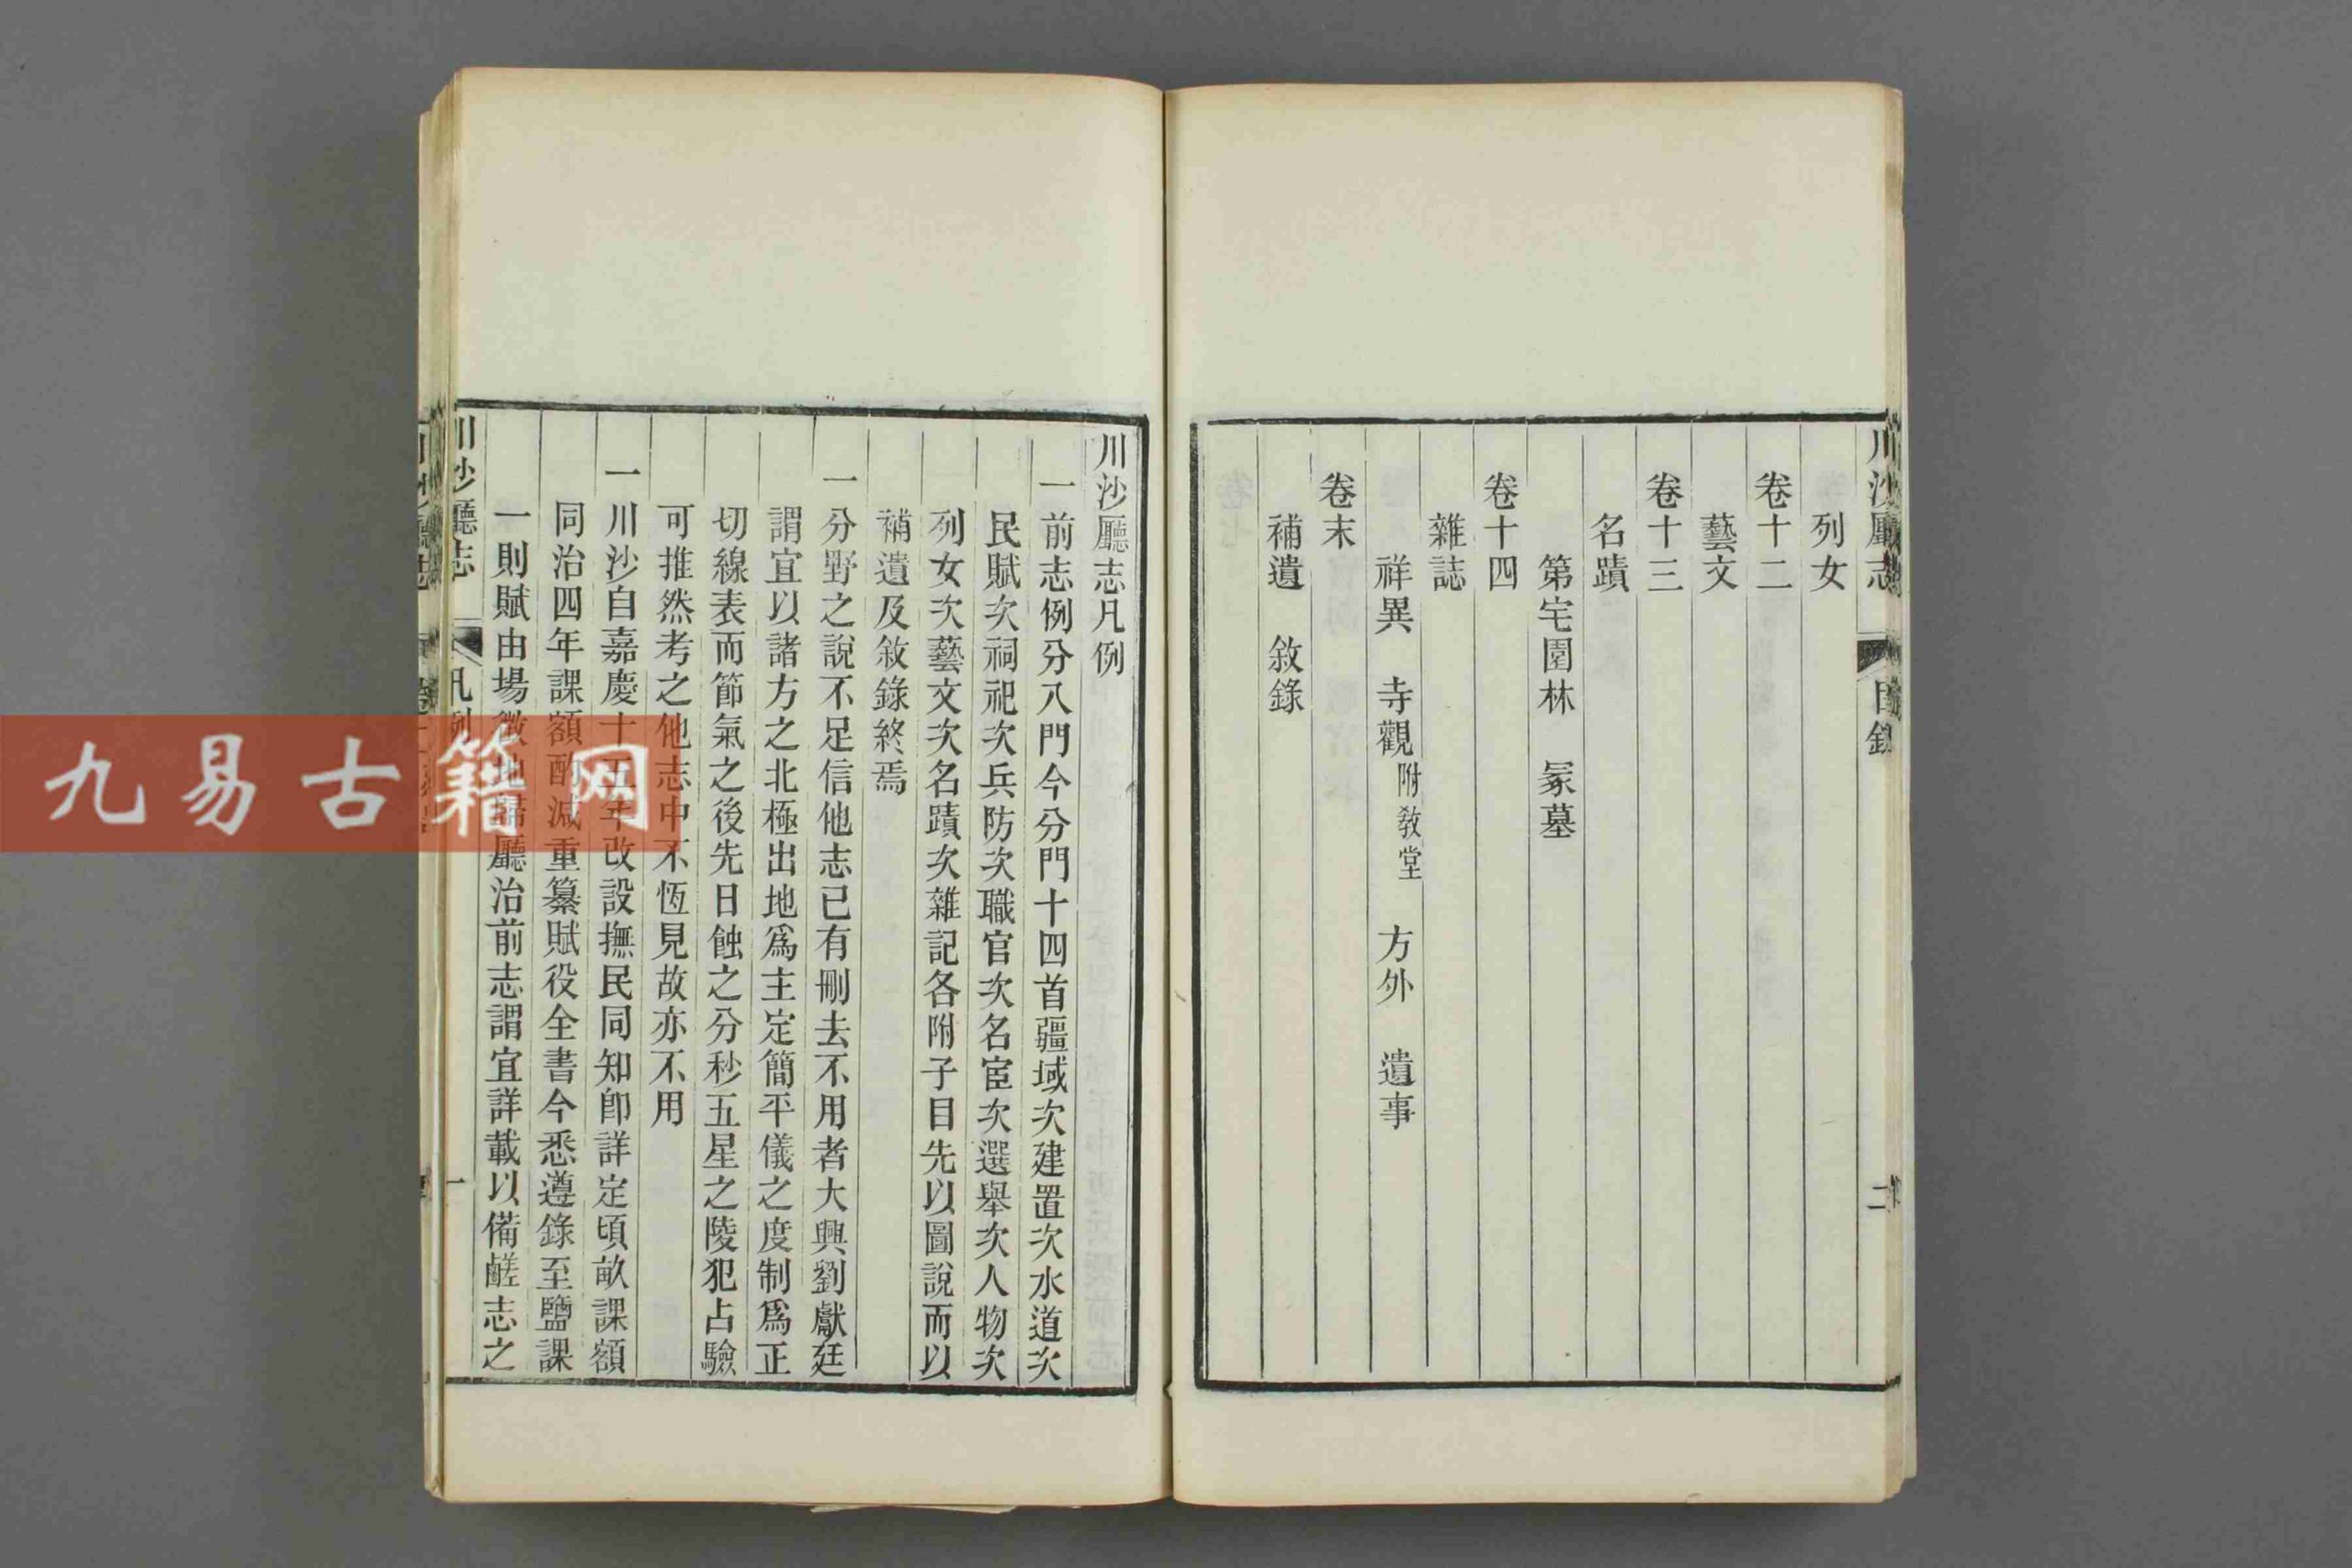 川沙廳志
目錄
二
列女
卷十二
藝文
卷十三
名蹟
第宅園林　冢墓
卷十四
雜誌
祥異　寺觀附教堂　方外　遺事
卷末
補遺　敘錄
川沙廳志凡例
一前志例分八門今分門十四首疆域次建置次水道次
民賦次祠祀次兵防次職官次名宦次選舉次人物次
列女次藝文次名蹟次雜記各附子目先以圖說而以
補遺及敘錄終焉
一分野之說不足信他志已有刪去不用者大興劉獻廷
謂宜以諸方之北極出地爲主定簡平儀之度制爲正
切線表而節氣之後先日蝕之分秒五星之陵犯占驗
可推然考之他志中不恆見故亦不用
一川沙自嘉慶十五年改設撫民同知卽詳定頃畝課額
同治四年課額酌減重纂賦役全書今悉遵錄至鹽課
一則賦由場徵地歸廳治前志謂宜詳載以備鹺志之
川沙廳志
凡例
一
九易古籍网